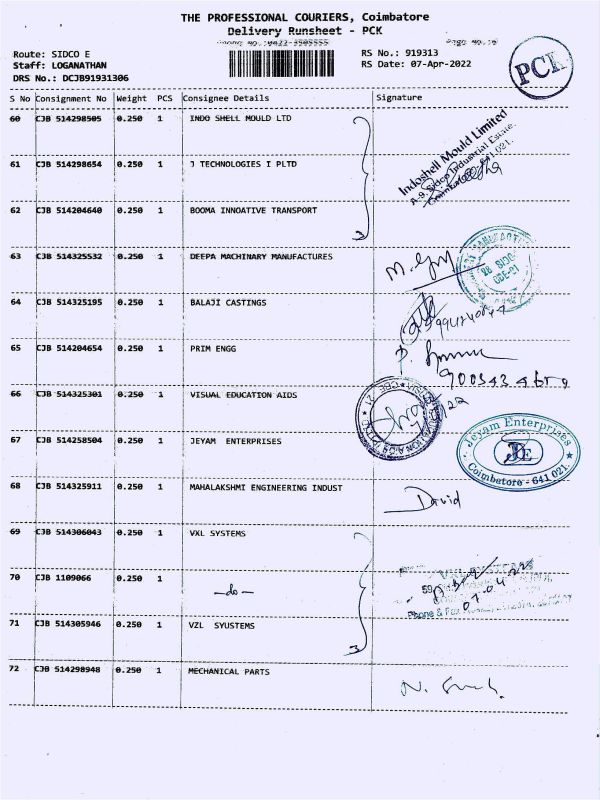 THE PROFESSIONAL COURIERS, Coimbatore
Delivery Runsheet - PCK
Phone No.:0422-3505555 Page No.:6
Route: SIDCO E
Staff: LOGANATHAN
DRS No.: DCJB91931306
RS No.: 919313
RS Date: 07-Apr-2022
PCK
S No Consignment No Weight PCS Consignee Details Signature
60 CJB 514298505 0.250 1 INDO SHELL MOULD LTD
Indoshell Mould Limited
A-9, Sidco Industrial Estate,
61 CJB 514298654 0.250 1 J TECHNOLOGIES I PLTD
62 CJB 514204640 0.250 1 BOOMA INNOATIVE TRANSPORT
3
63 CJB 514325532 0.250 1 DEEPA MACHINARY MANUFACTURES
64 CJB 514325195 0.250 1 BALAJI CASTINGS
65 CJB 514204654 0.250 1 PRIM ENGG
66 CJB 514325301 0.250 1 VISUAL EDUCATION AIDS
67 CJB 514258504 0.250 1 JEYAM ENTERPRISES
Jeyam Enterprises
JE
Coimbatore - 641 021.
68 CJB 514325911 0.250 1 MAHALAKSHMI ENGINEERING INDUST
David
69 CJB 514306043 0.250 1 VXL SYSTEMS
70 CJB 1109066 0.250 1 —do—
VXL SYSTEMS
59,
07.04
Phone & Fax
71 CJB 514305946 0.250 1 VZL SYUSTEMS
3
72 CJB 514298948 0.250 1 MECHANICAL PARTS